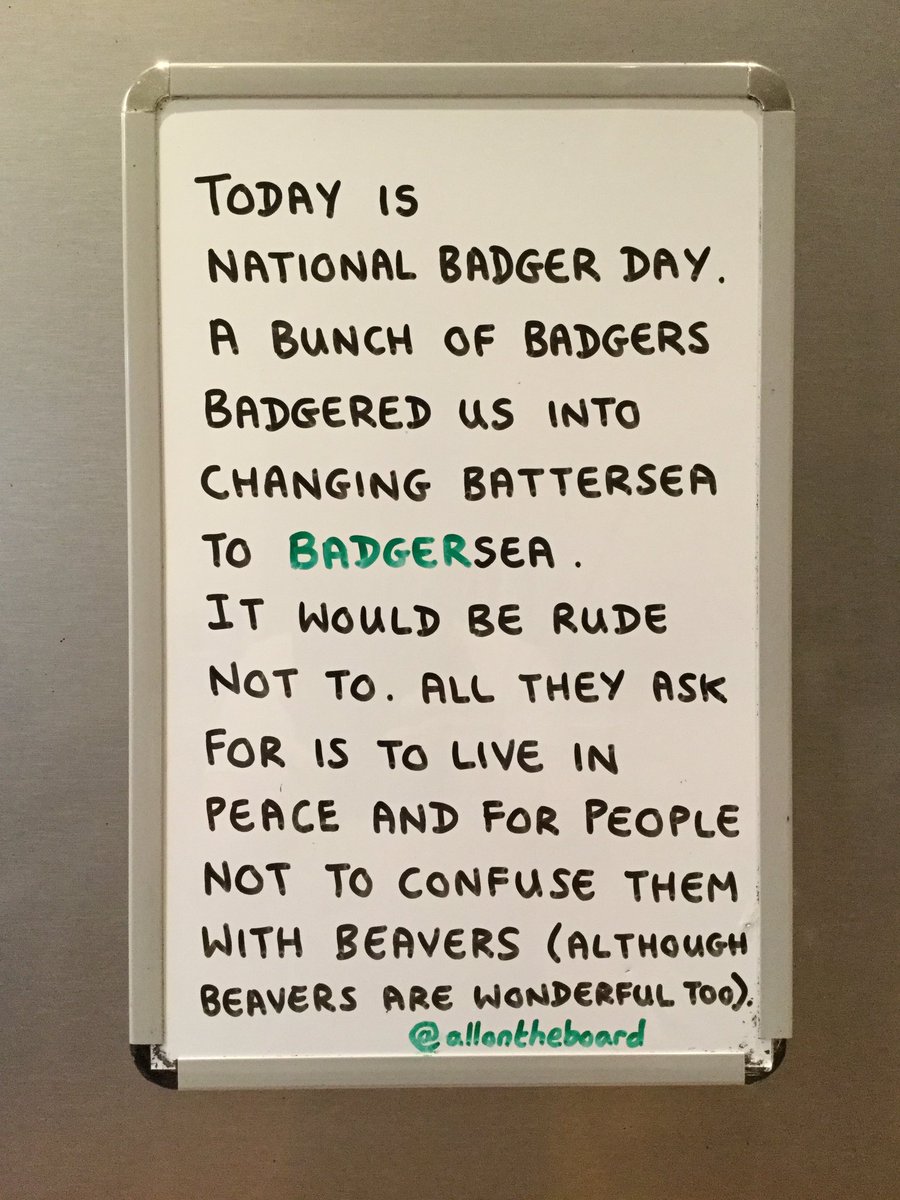 TODAY IS
NATIONAL BADGER DAY.
A BUNCH OF BADGERS
BADGERED US INTO
CHANGING BATTERSEA
TO BADGERSEA.
IT WOULD BE RUDE
NOT TO. ALL THEY ASK
FOR IS TO LIVE IN
PEACE AND FOR PEOPLE
NOT TO CONFUSE THEM
WITH BEAVERS (ALTHOUGH
BEAVERS ARE WONDERFUL TOO).
@allontheboard